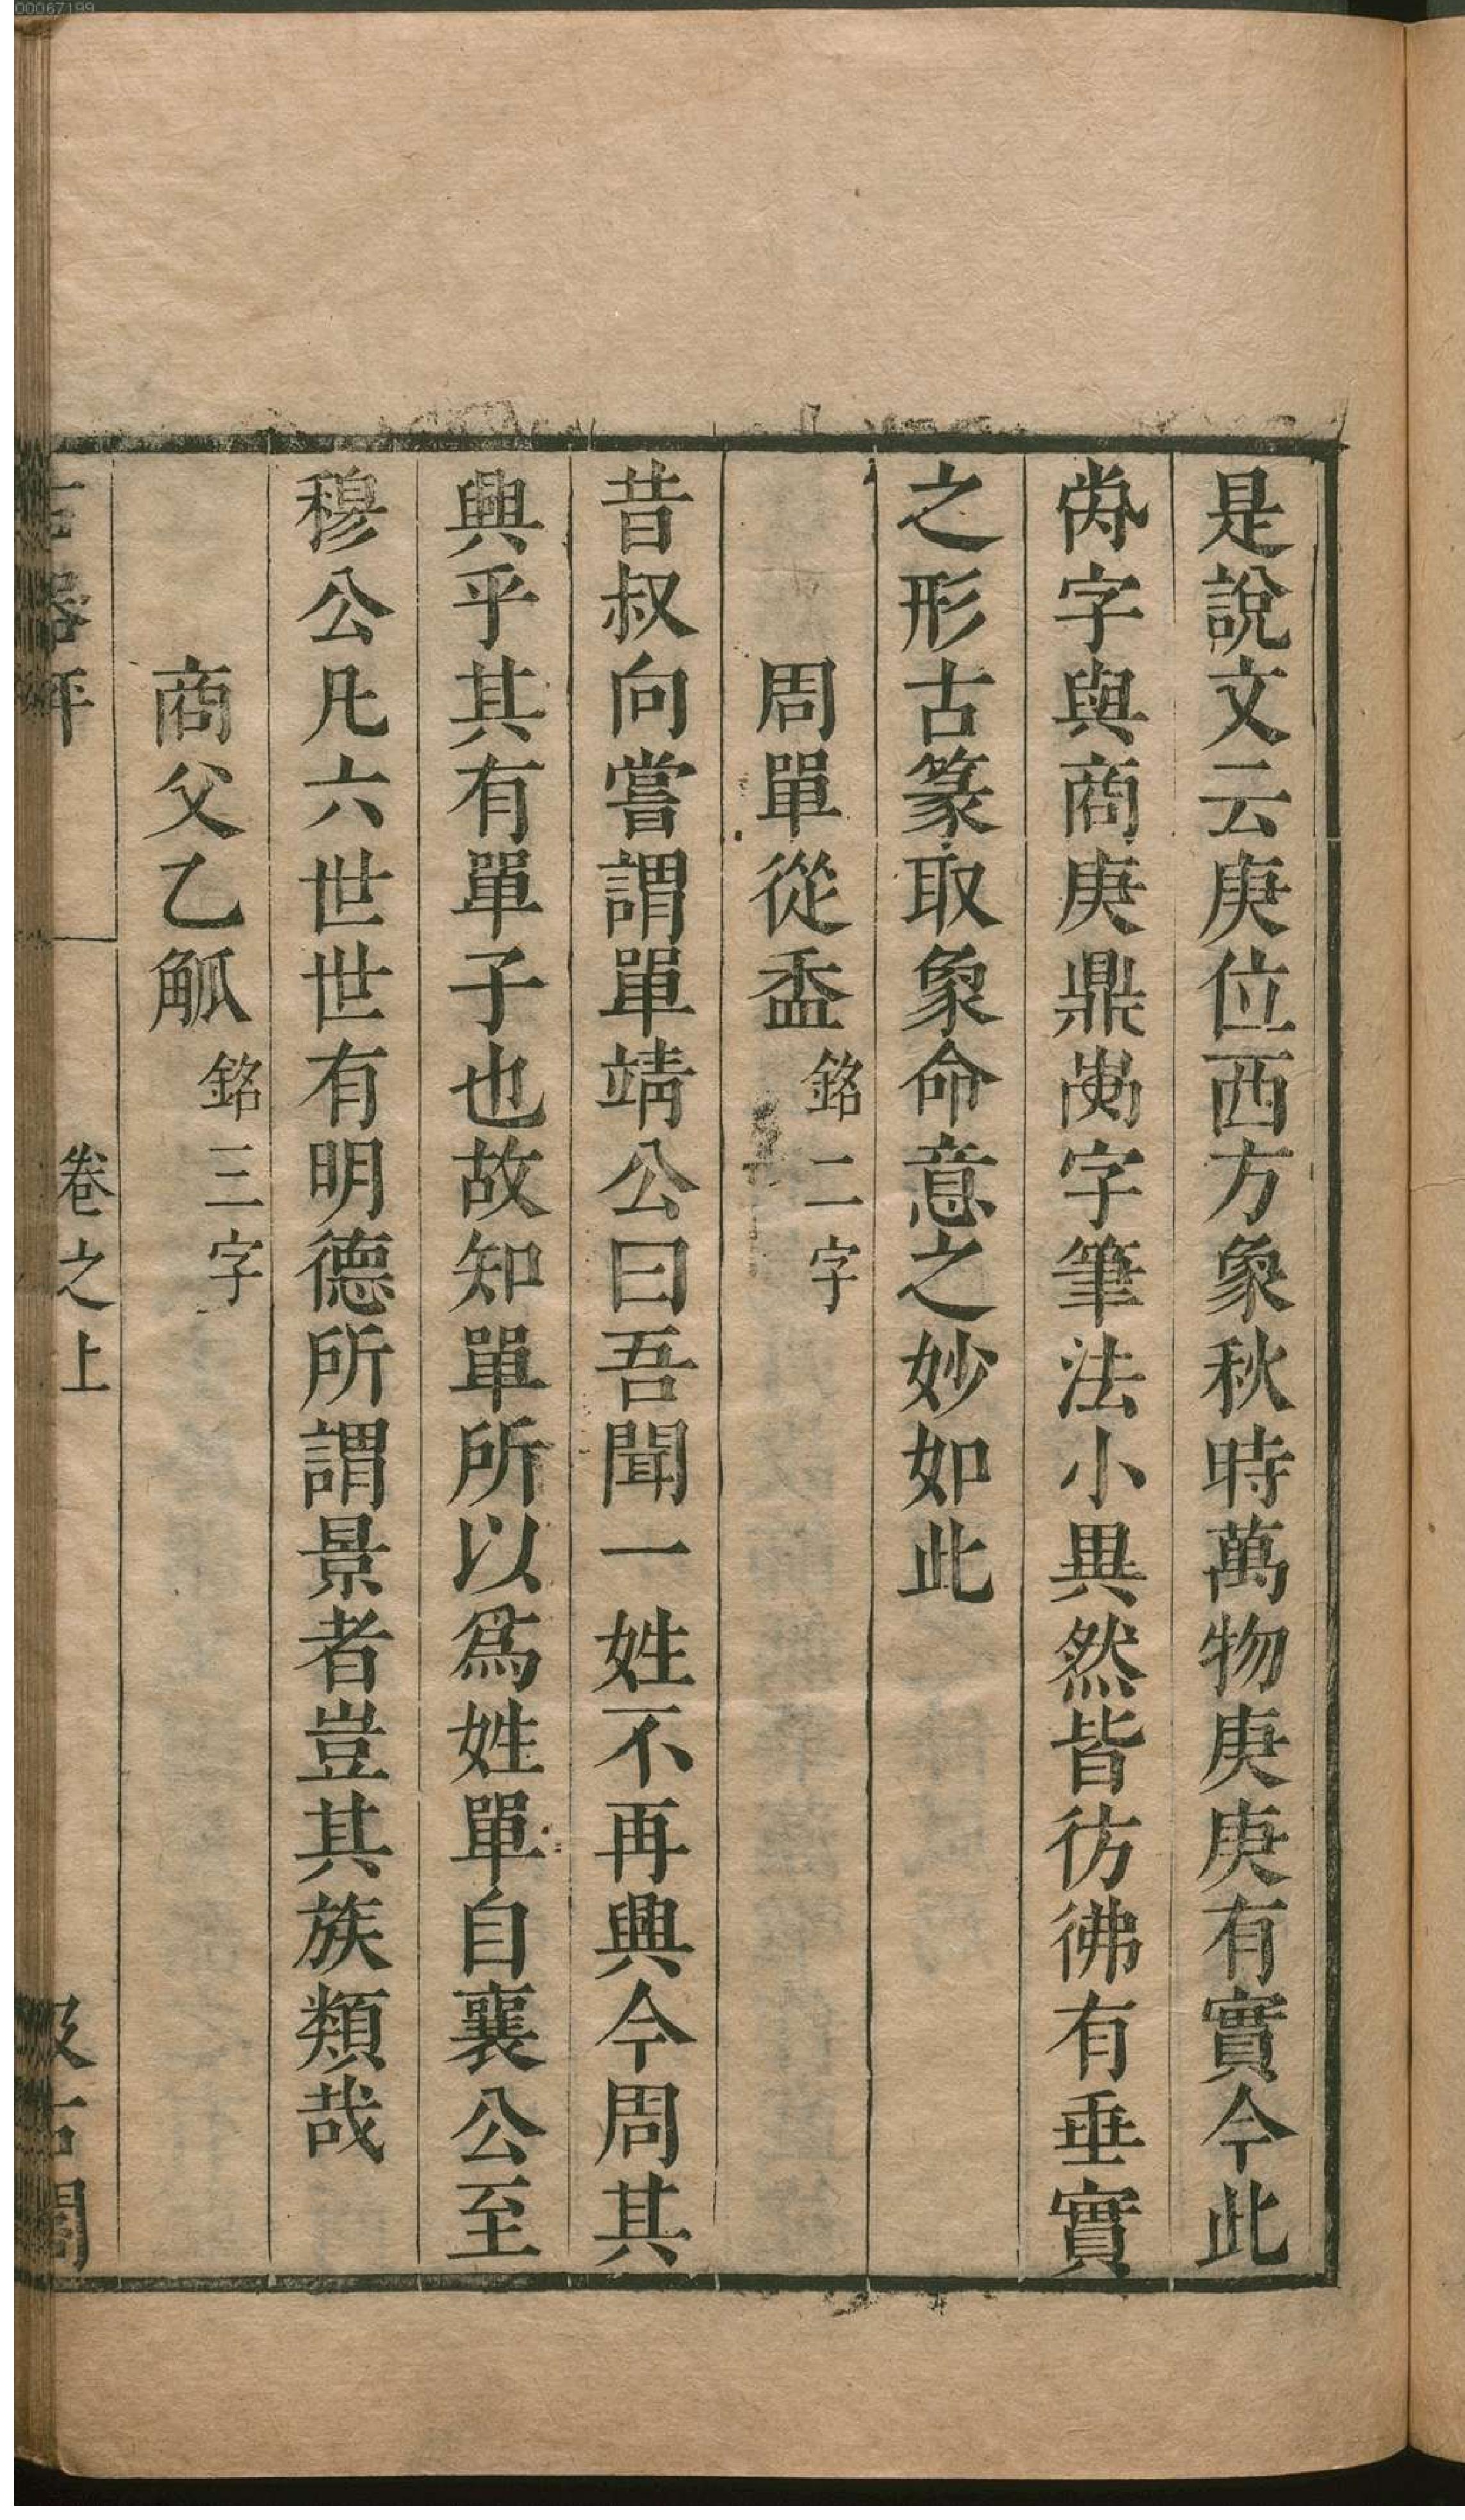 是說文云庚位西方象秋時萬物庚庚有實今此
字與商庚鼎字筆法小異然皆彷彿有垂實
之形古篆取象命意之妙如此
周單從盉銘二字
昔叔向嘗謂單靖公曰吾聞一姓不再興今周其
興乎其有單子也故知單所以爲姓單自襄公至
穆公凡六世世有明德所謂景者豈其族類哉
商父乙觚銘三字
卷之上
00067199